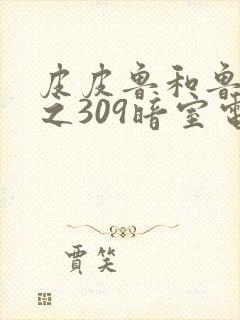 皮皮鲁和鲁
之309暗室
賈笑